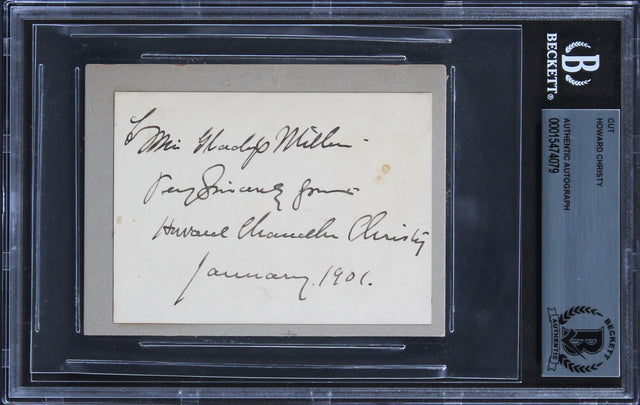 To Miss Gladys Miller -
Very Sincerely yours
Howard Chandler Christy
January. 1901.
BECKETT®
CUT
HOWARD CHRISTY
AUTHENTIC AUTOGRAPH
00015474079
BECKETT
AUTHENTIC